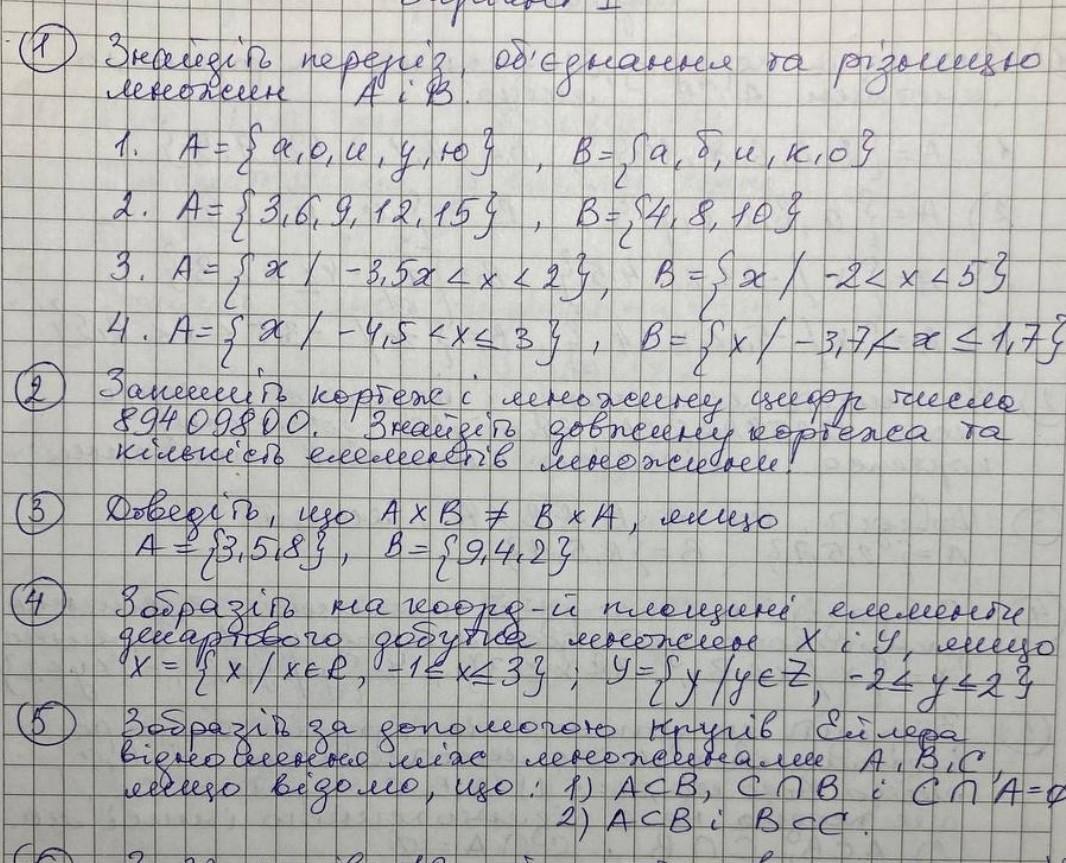 Варіант 1
1 Знайдіть переріз, об'єднання та різницю
множин A і B.
1. A = {а, о, и, у, ю}, B = {а, б, и, к, о}
2. A = {3, 6, 9, 12, 15}, B = {4, 8, 10}
3. A = {x / -3,5x < x < 2}, B = {x / -2 < x < 5}
4. A = {x / -4,5 < x ≤ 3}, B = {x / -3,7 < x ≤ 1,7}
2 Запишіть кортеж і множину цифр числа
89409800. Знайдіть довжину кортежа та
кількість елементів множини.
3 Доведіть, що A × B ≠ B × A, якщо
A = {3, 5, 8}, B = {9, 4, 2}
4 Зобразіть на коорд-й площині елементи
декартового добутка множин X і Y, якщо
X = {x / x ∈ R, -1 ≤ x ≤ 3}; Y = {y / y ∈ Z, -2 ≤ y ≤ 2}
5 Зобразіть за допомогою кругів Ейлера
відношення між множинами A, B, C,
якщо відомо, що: 1) A ⊂ B, C ∩ B і C ∩ A = ∅
2) A ⊂ B і B ⊂ C.